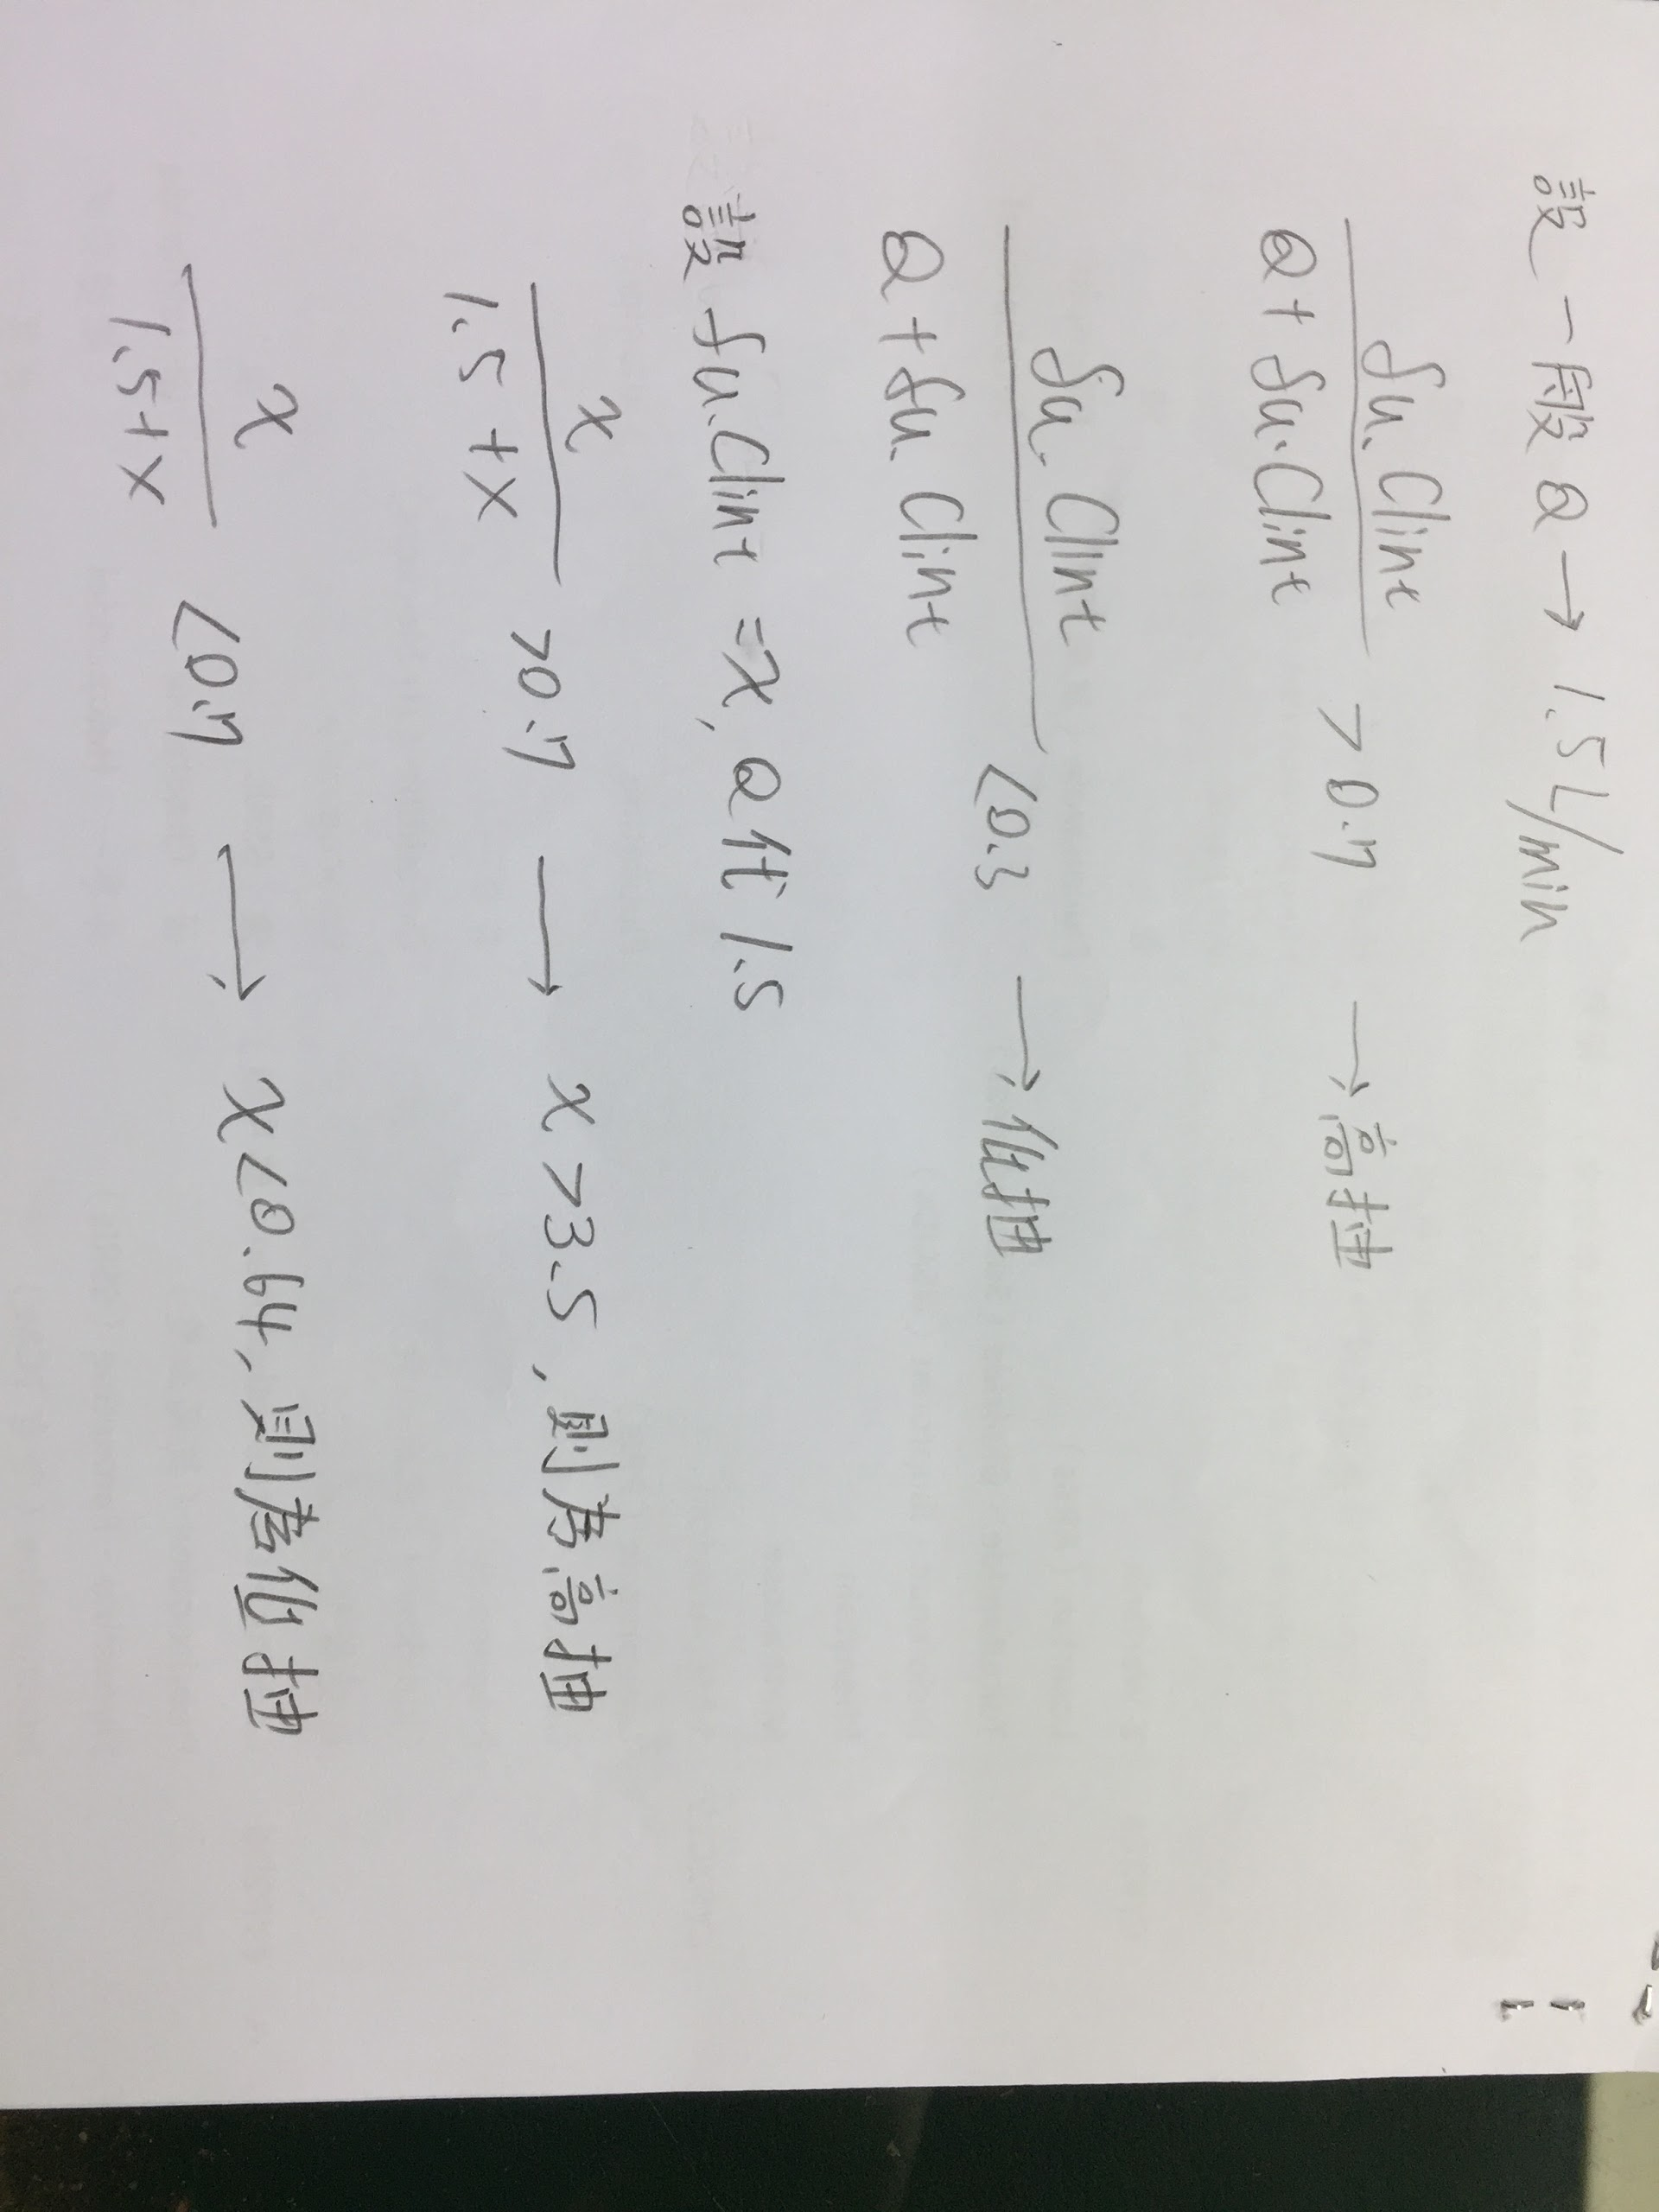 設一般 Q → 1.5 L/min
fu.Clint / Q + fu.Clint > 0.7 → 高抽
fu.Clint / Q + fu.Clint < 0.3 → 低抽
設 fu.Clint = x, Q代1.5
x / 1.5 + x > 0.7 → x > 3.5, 則為高抽
x / 1.5 + x < 0.7 → x < 0.64, 則為低抽